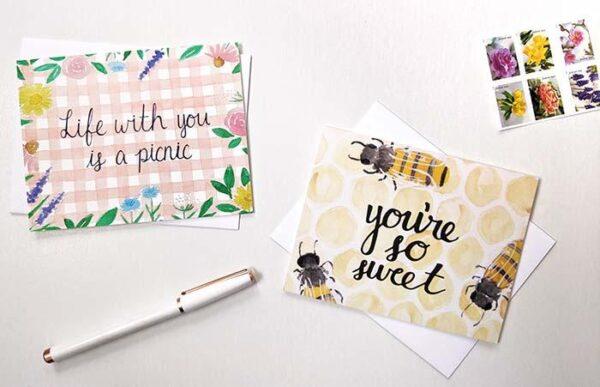 Life with you
is a picnic
you're
so
sweet